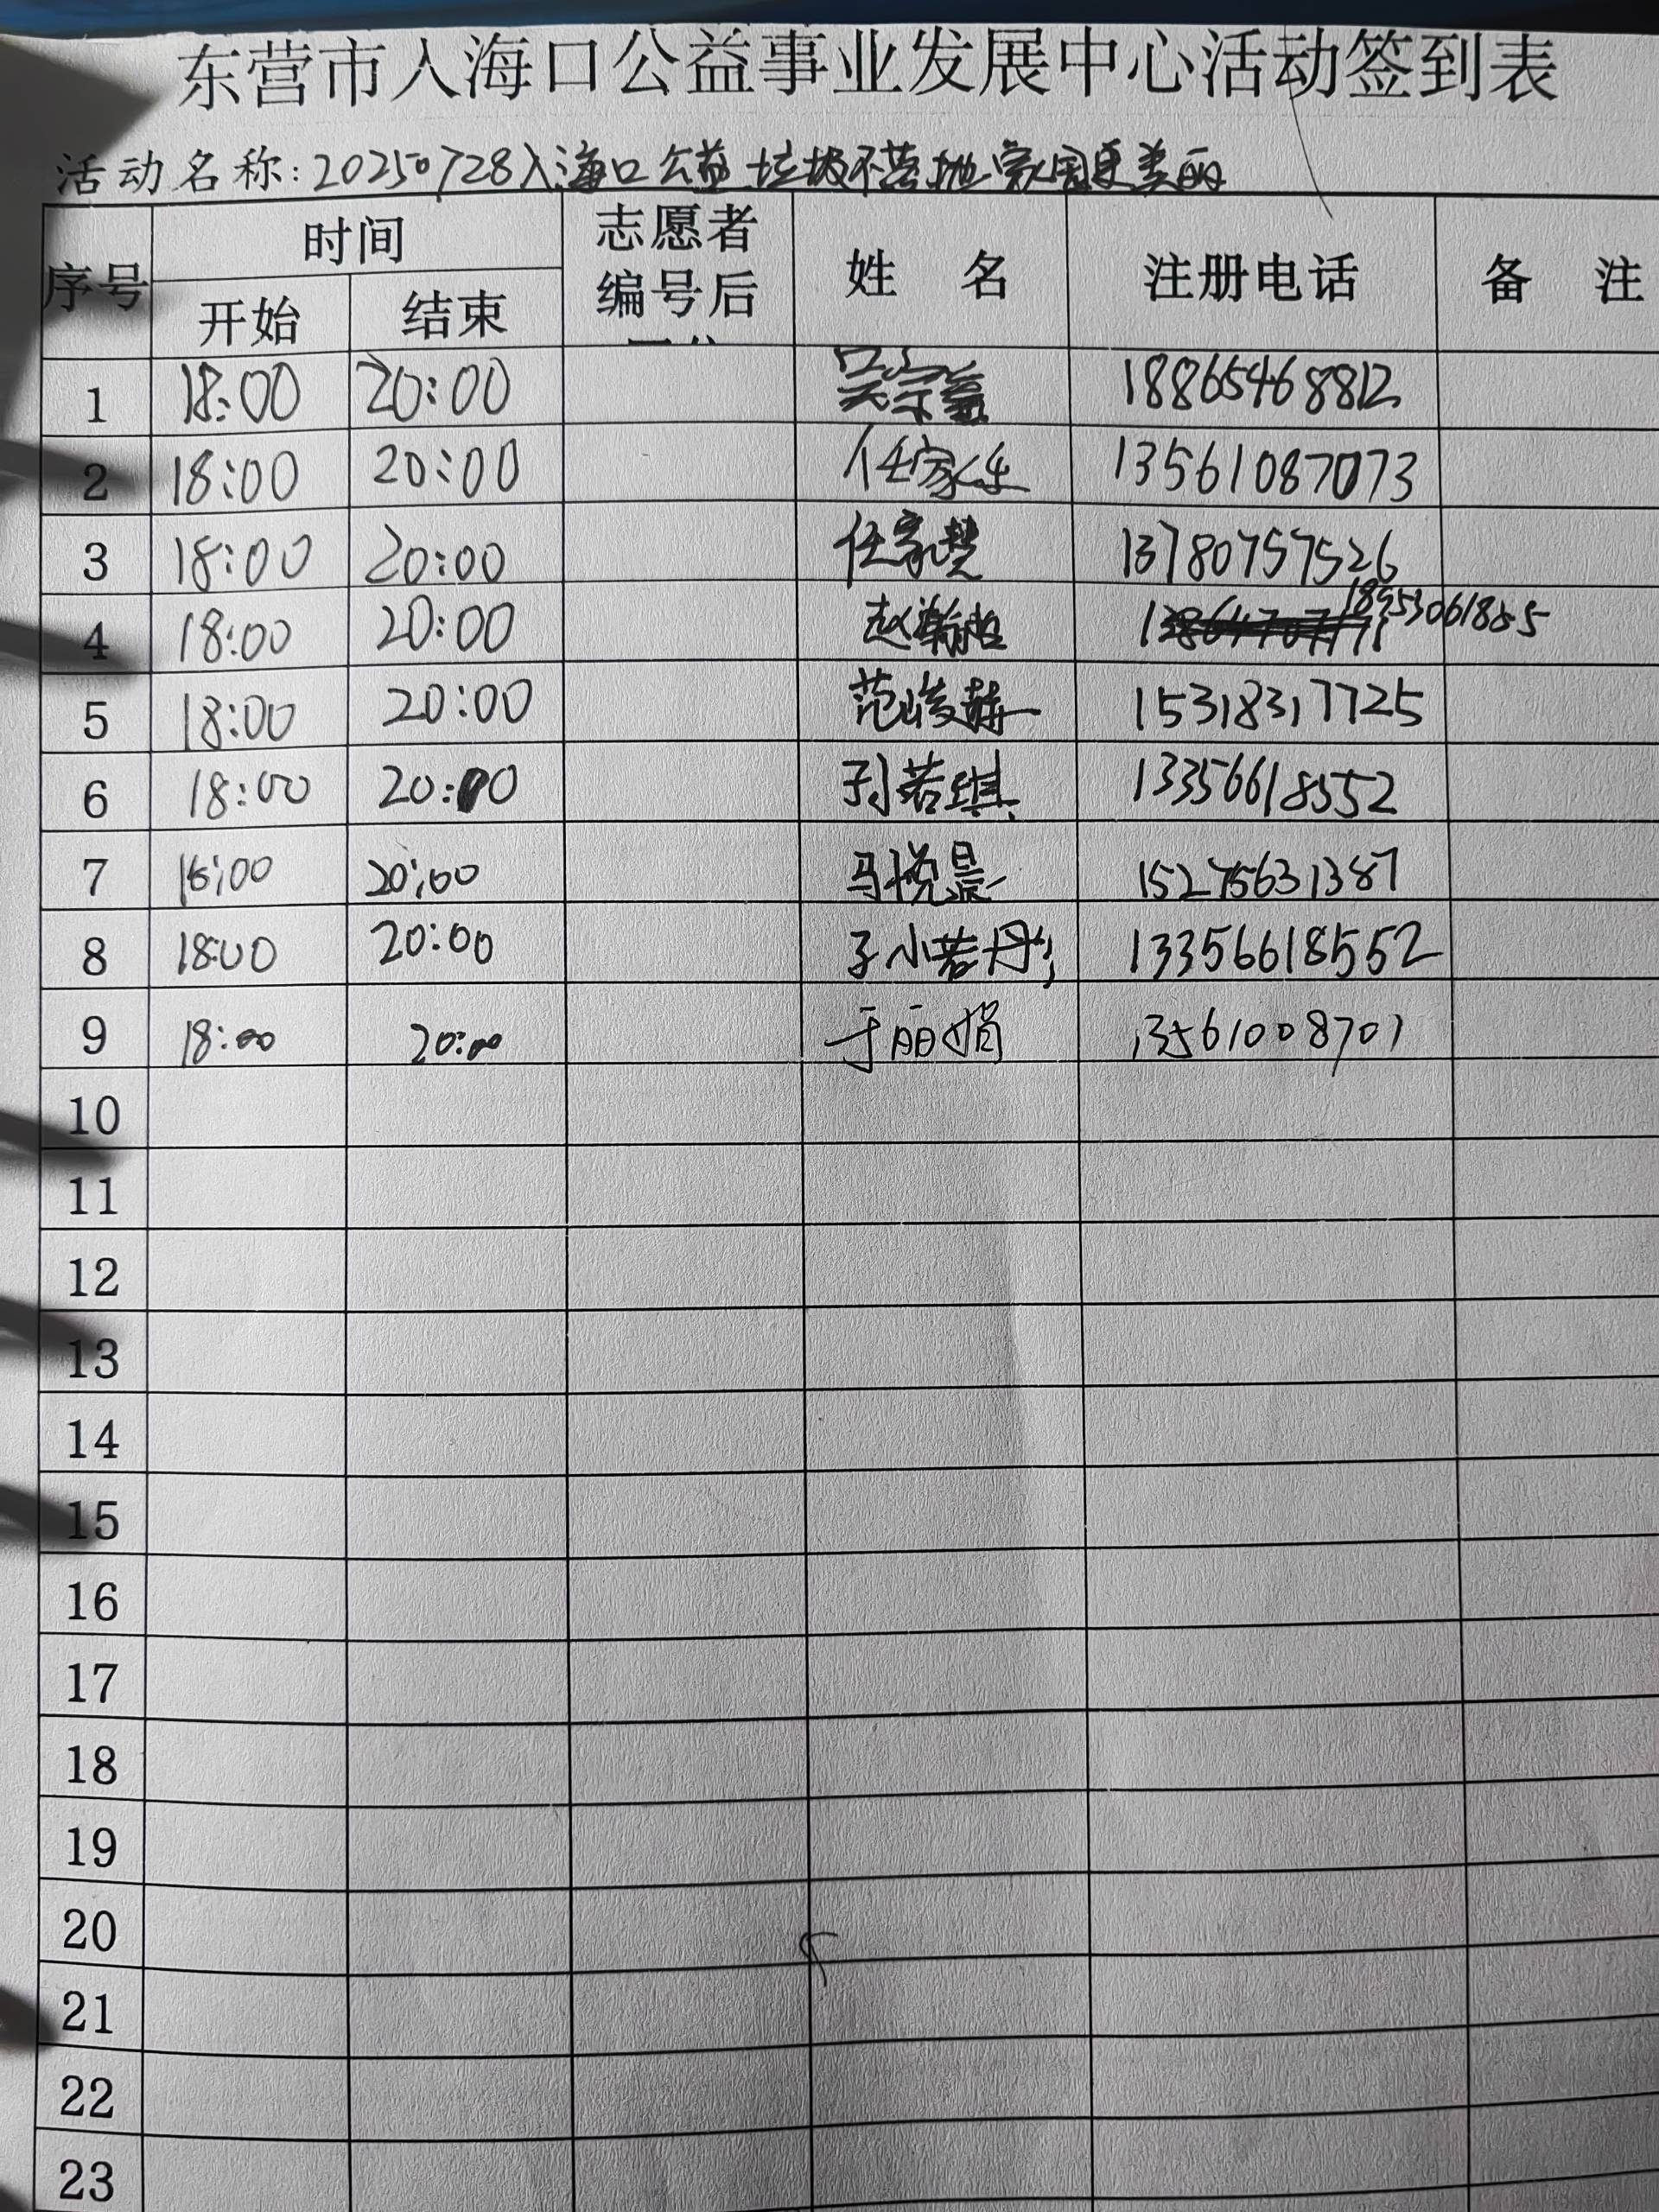 东营市入海口公益事业发展中心活动签到表
活动名称：20250728入海口公益垃圾不落地家园更美丽
序号 时间 志愿者编号后 姓名 注册电话 备注
开始 结束
1 18:00 20:00 吴宗鑫 18865468812
2 18:00 20:00 任家乐 13561087073
3 18:00 20:00 任家慧 13780757526
4 18:00 20:00 赵瀚哲 18953061885
5 18:00 20:00 范峻赫 15318317725
6 18:00 20:00 孙若琪 13356618552
7 18:00 20:00 马悦景 15275631387
8 18:00 20:00 孙若彤 13356618552
9 18:00 20:00 于丽娟 13561008701
10
11
12
13
14
15
16
17
18
19
20
21
22
23